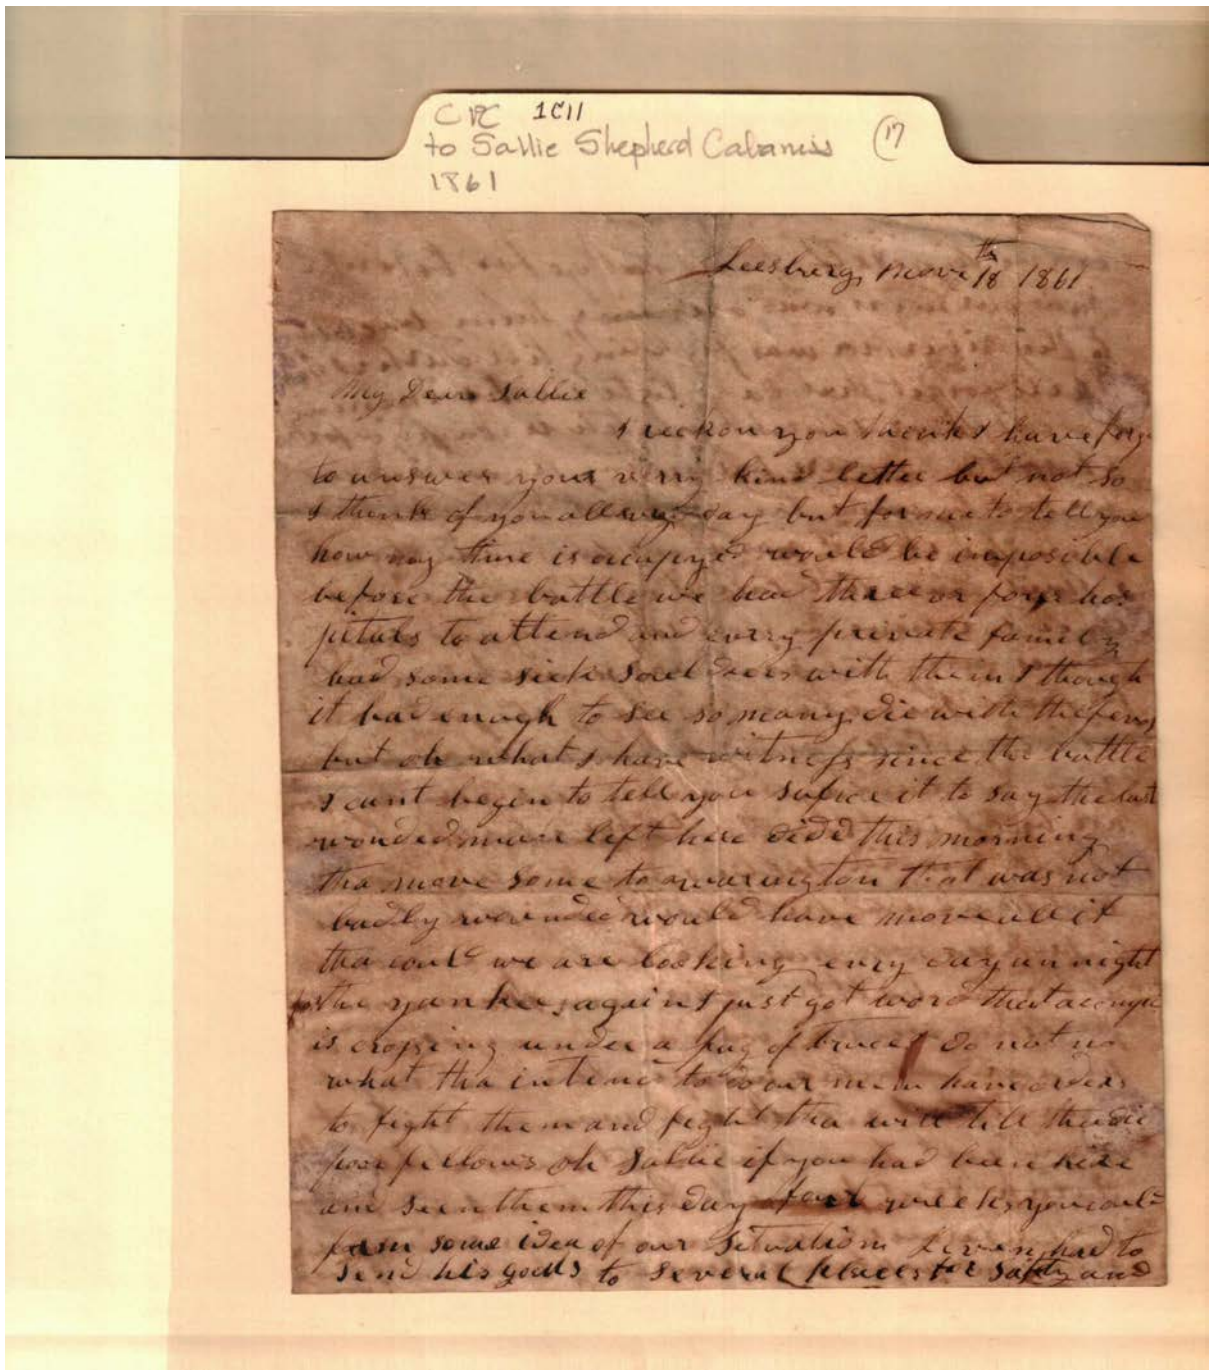 CPC 1C11
to Sallie Shepherd Cabaniss (17)
1861
Leesburg, Nov 18th 1861
My Dear Sallie
I reckon you think I have forg
to answer your verry kind letter but not so
I think of you all evry day but for me to tell you
how my time is ocupyed would be imposible
before the battle we had three or four hos
pitals to attend and evry private family
had some sick souldiers with them I though
it bad enough to see so many die with the fever
but oh what I have witness since the battle
I cant begin to tell you sufice it to say the last
wonded man left here died this morning
tha move some to warington that was not
badly wounded would have move all if
tha could we are looking evry day an night
for the yankees again I just got word that a
is crossing under a flag of truce I do not no
what tha intend to do our men have orders
to fight them and fight tha will till tha die
poor fellows oh Sallie if you had been here
and seen them this day four weeks you could
form some idea of our situation had to
send his goods to several places for safety and